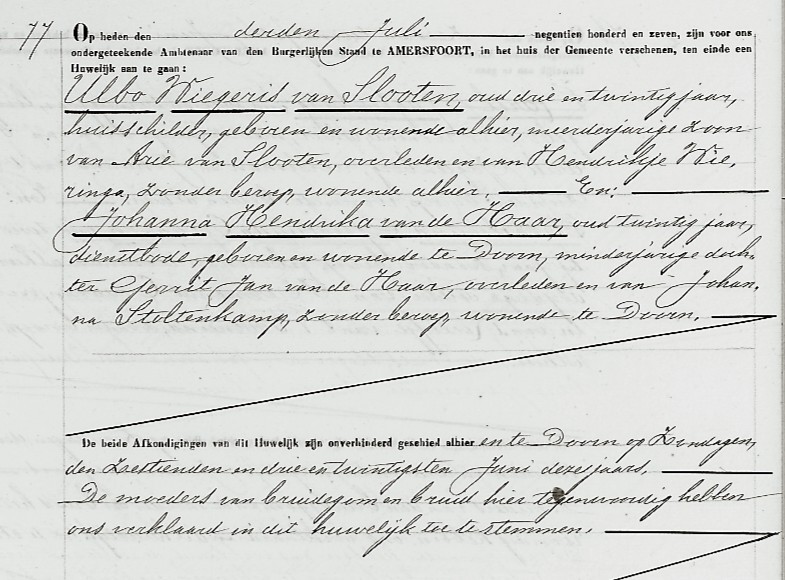 77 Op heden den derden Juli negentien honderd en zeven, zijn voor ons,
ondergeteekende Ambtenaar van den Burgerlijken Stand te AMERSFOORT, in het huis der Gemeente verschenen, ten einde een
Huwelijk aan te gaan:
Ulbo Wiegeris van Slooten, oud drie en twintig jaar,
huisschilder, geboren en wonende alhier, meerderjarige zoon
van Arie van Slooten, overleden en van Hendrikje Wie,
ringa, zonder beroep, wonende alhier. En:
Johanna Hendrika van de Haar, oud twintig jaar,
dienstbode, geboren en wonende te Doorn, minderjarige doch,
ter Gerrit Jan van de Haar, overleden en van Johan,
na Stoltenkamp, zonder beroep, wonende te Doorn.
De beide Afkondigingen van dit Huwelijk zijn onverhinderd geschied alhier en te Doorn op Zondagen,
den Zestienden en drie en twintigsten Juni dezes jaars.
De moeders van bruidegom en bruid hier tegenwoordig hebben
ons verklaard in dit huwelijk toe te stemmen.